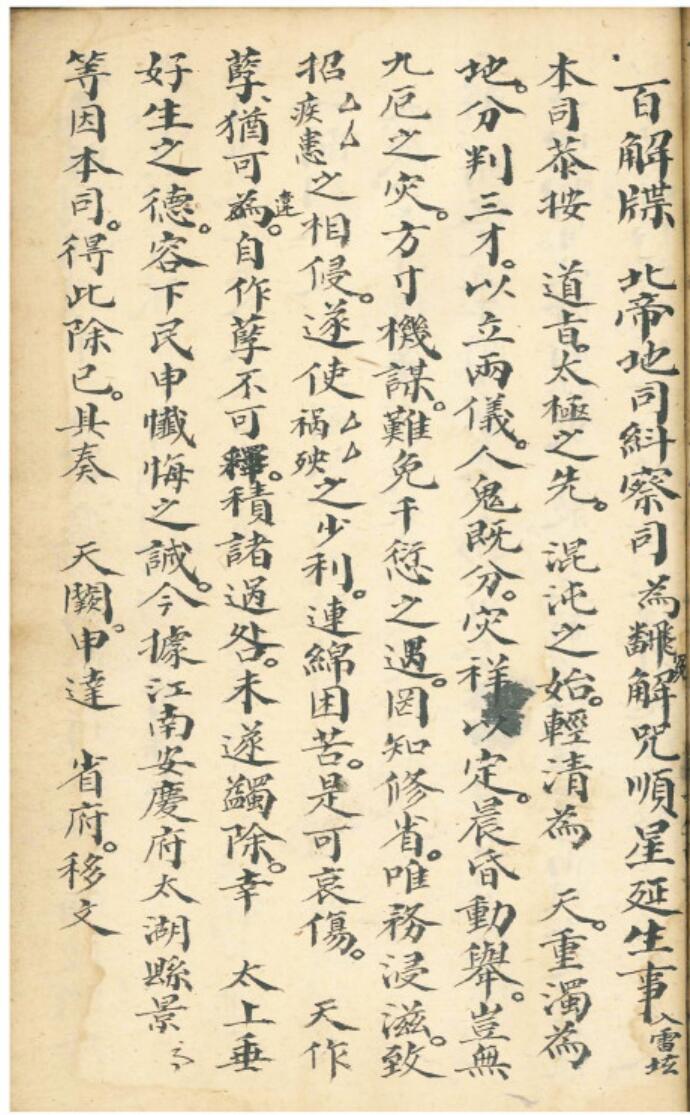 百解牒　北帝地司糾察司為飜解咒順星延生事入雷壇
本司恭按　道旨。太極之先。混沌之始。輕清為　天。重濁為
地。分判三才。以立兩儀。人鬼既分。灾祥以定。晨昏動舉。豈無
九厄之灾。方寸機謀。難免千愆之遇。罔知修省。唯務浸滋。致
招厶厶疾患之相侵。遂使厶厶祸殃之少利。連綿困苦。是可哀傷。天作
孽、猶可為違。自作孽不可釋。積諸過咎。未遂蠲除。幸　太上垂
好生之德。容下民申懺悔之誠。今據江南安慶府太湖縣景
等因本司。得此除已。具奏　天闕。申達　省府。移文